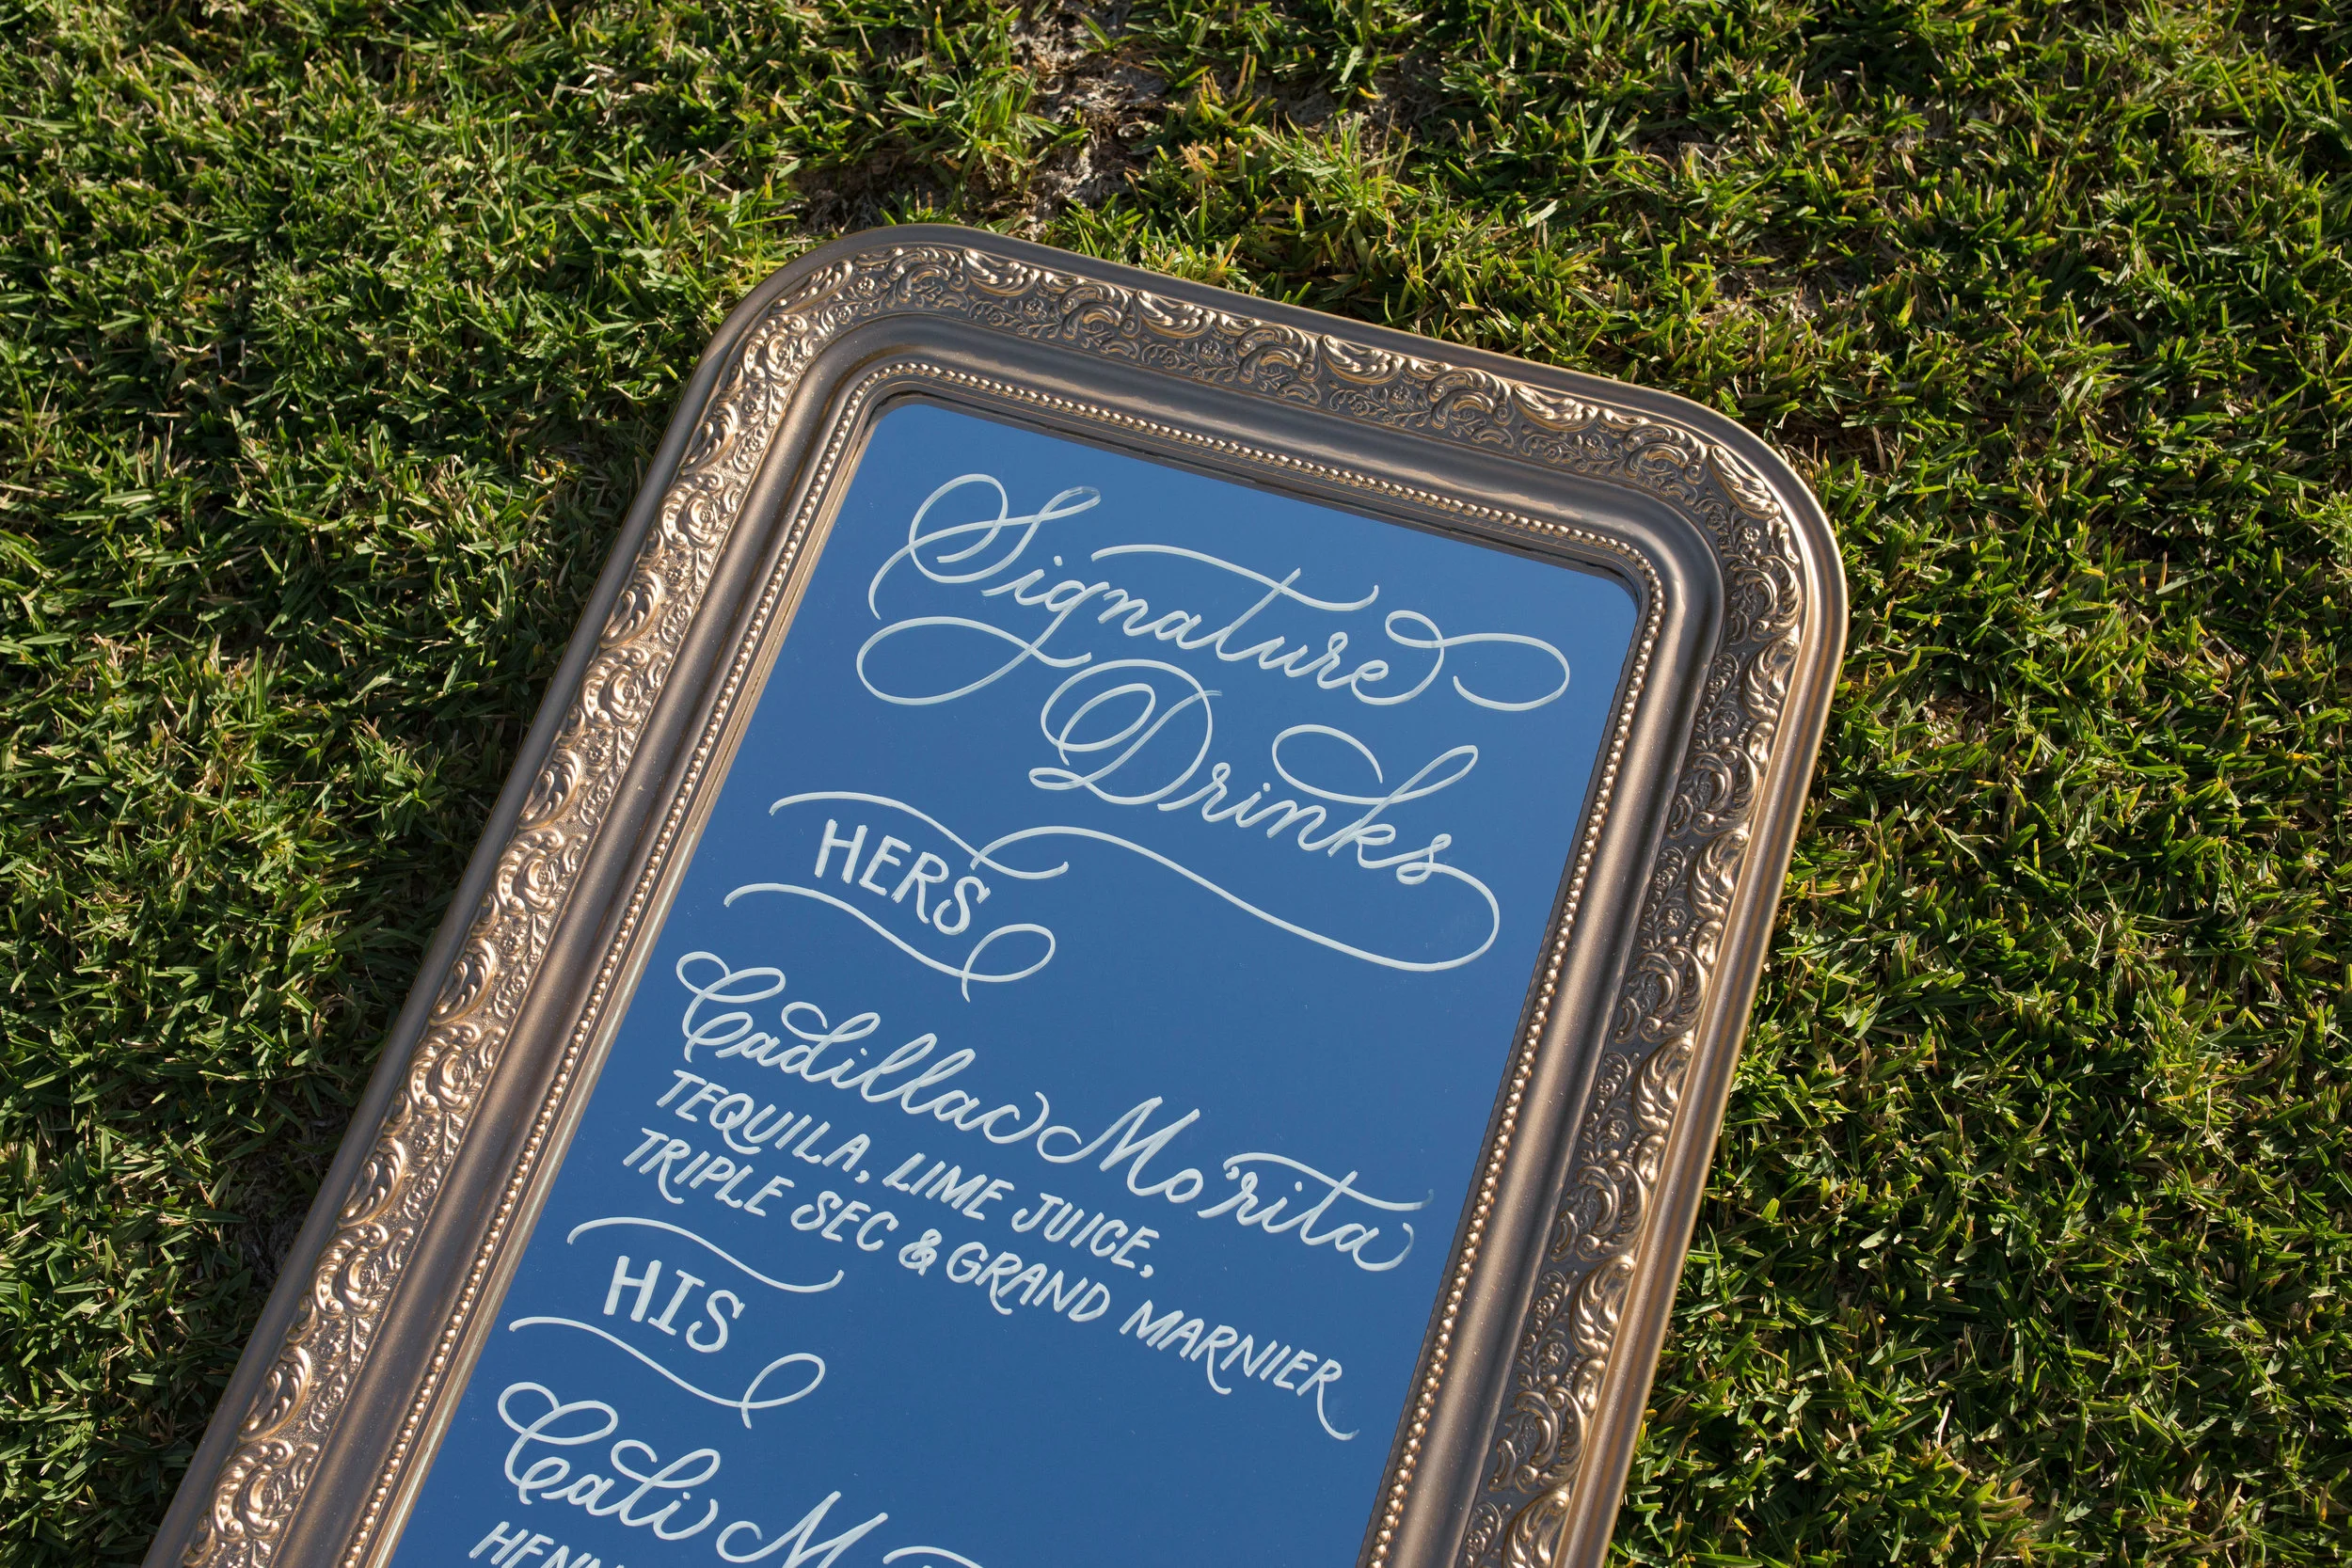 Signature
Drinks
HERS
Cadillac Mo'rita
TEQUILA, LIME JUICE,
TRIPLE SEC & GRAND MARNIER
HIS
Cali